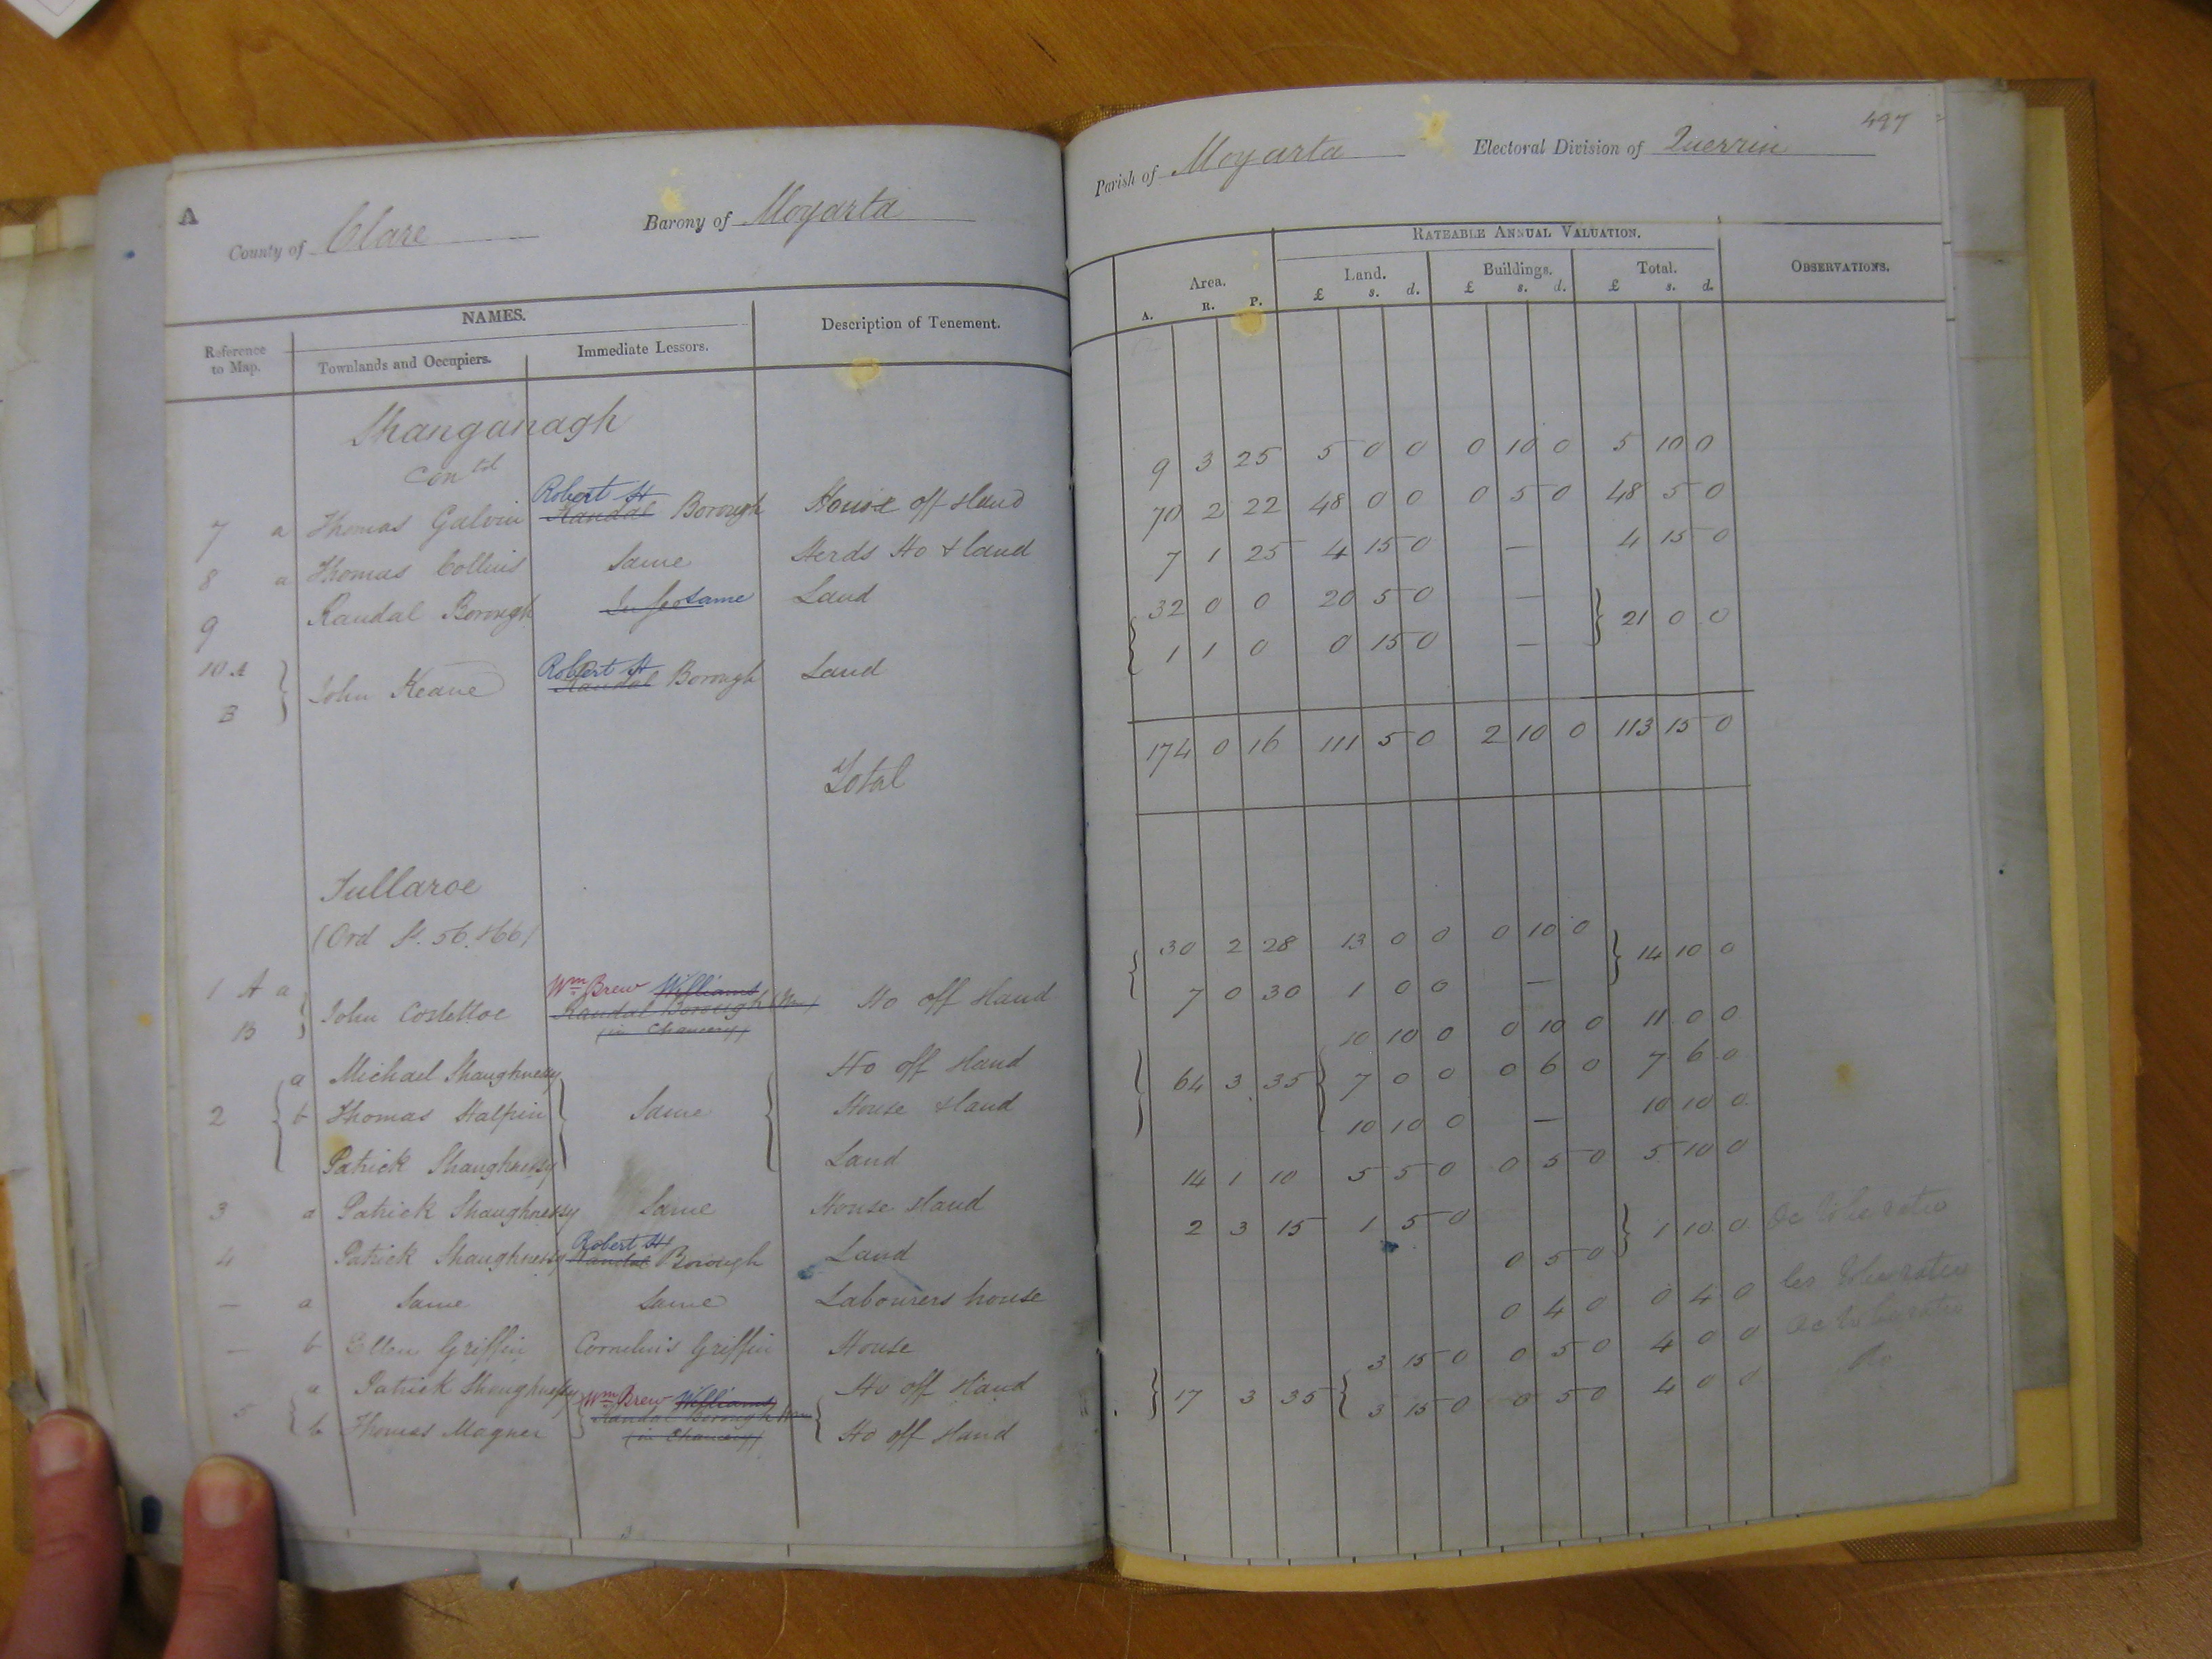 A
County of Clare Barony of Moyarta
NAMES.
Reference to Map. Townlands and Occupiers. Immediate Lessors. Description of Tenement.
Shanganagh
Contd
Robert H
7 a Thomas Galvin Randal Borough House off & land
8 a Thomas Collins Same Herds Ho & land
9 Randal Borough In fee same Land
Robert H
10 A B } John Keane Randal Borough Land
Total
Tullaroe
(Ord S. 56. & 66)
Wm Brew Williams
1 A a B } John Costelloe Randal Borough (in Chancery) Ho off & land
a Michael Shaughnessy Ho off & land
2 { b Thomas Halpin } Same { House & land
Patrick Shaughnessy Land
3 a Patrick Shaughnessy Same House & land
Robert H
4 Patrick Shaughnessy Randal Borough Land
— a Same Same Labourers house
— b Ellen Griffin Cornelius Griffin House
a Patrick Shaughnessy Wm Brew Williams Ho off & land
5 { b Thomas Magner } Randal Borough (in Chancery) { Ho off & land
497
Parish of Moyarta Electoral Division of Querrin
RATEABLE ANNUAL VALUATION.
Area. Land. Buildings. Total. OBSERVATIONS.
A. R. P. £ s. d. £ s. d. £ s. d.
9 3 25 5 0 0 0 10 0 5 10 0
70 2 22 48 0 0 0 5 0 48 5 0
7 1 25 4 15 0 — 4 15 0
{ 32 0 0 20 5 0 — } 21 0 0
1 1 0 0 15 0 —
174 0 16 111 5 0 2 10 0 113 15 0
{ 30 2 28 13 0 0 0 10 0 } 14 10 0
7 0 30 1 0 0 —
10 10 0 0 10 0 11 0 0
} 64 3 35 { 7 0 0 0 6 0 7 6 0
10 10 0 — 10 10 0
14 1 10 5 5 0 0 5 0 5 10 0
2 3 15 1 5 0 } 1 10 0
0 5 0
0 4 0 0 4 0
3 15 0 0 5 0 4 0 0
} 17 3 35 { 3 15 0 0 5 0 4 0 0